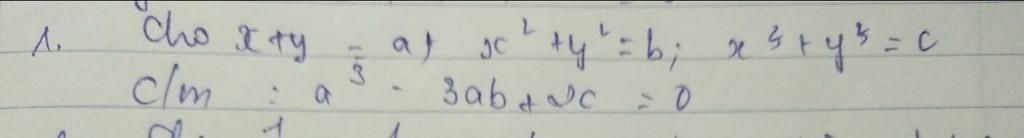 1. Cho x+y = a; x² + y² = b; x³ + y³ = c
C/m : a³ - 3ab + 2c = 0